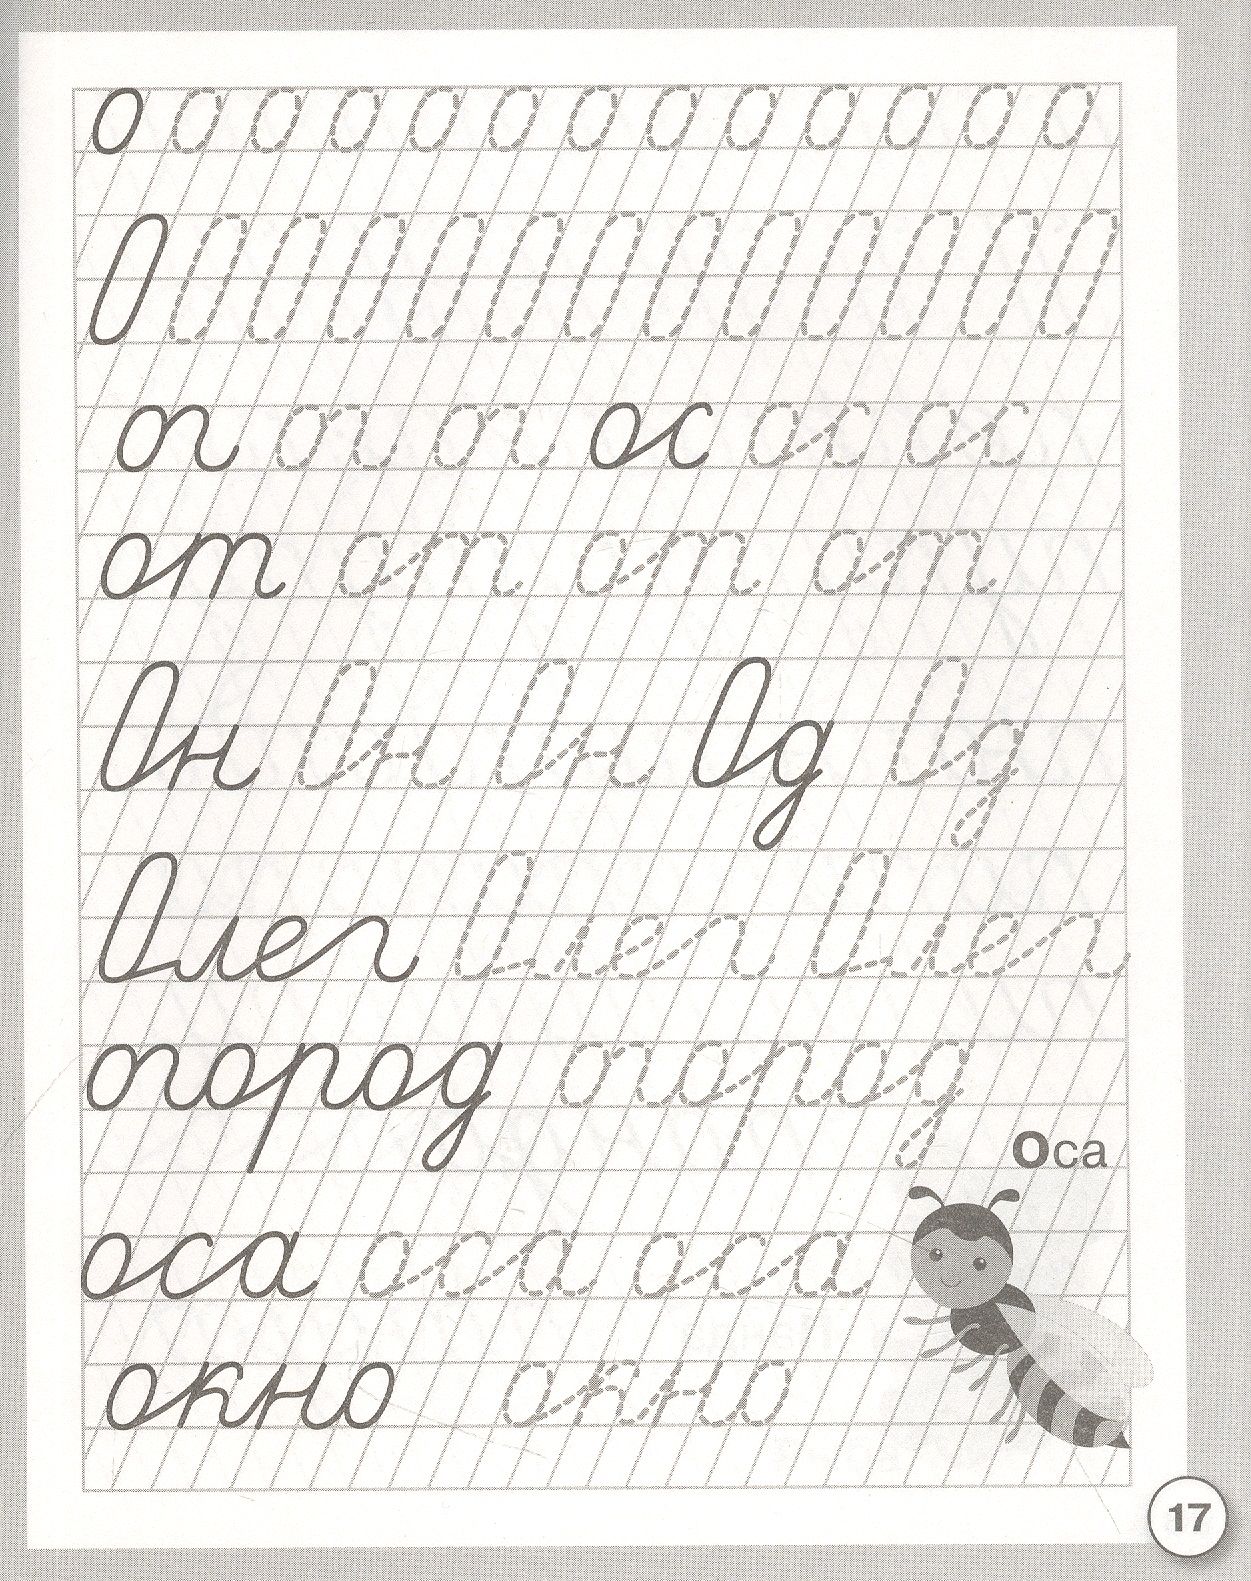 о о о о о о о о о о о о о
О О О О О О О О О О О О О
ог ог ог ос ос ос
от от от от
Он Он Он Од Од
Олег Олег Олег
огород огород
оса
оса оса оса
окно окно
17